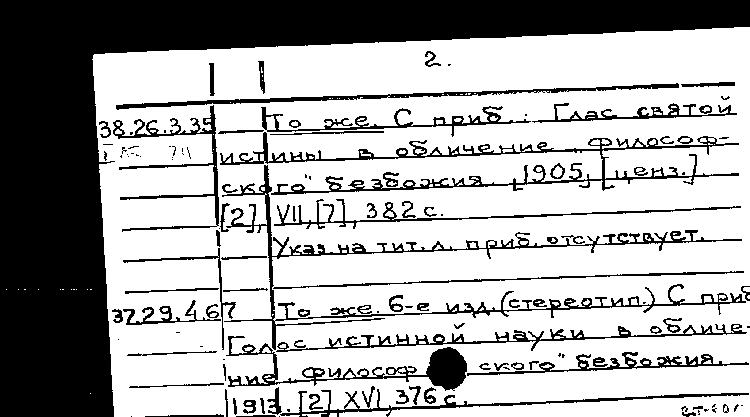 2.
38.26.3.35 То же. С приб.: Глас святой
истины в обличение „философ-
ского" безбожия. [1905, [ценз.].
[2], VII, [7], 382 с.
Указ. на тит. л. приб. отсутствует.
37.29.4.67 То же. 6-е изд. (стереотип.) С приб
Голос истинной науки в обличе-
ние „философского" безбожия.
1913. [2], XVI, 376 с.